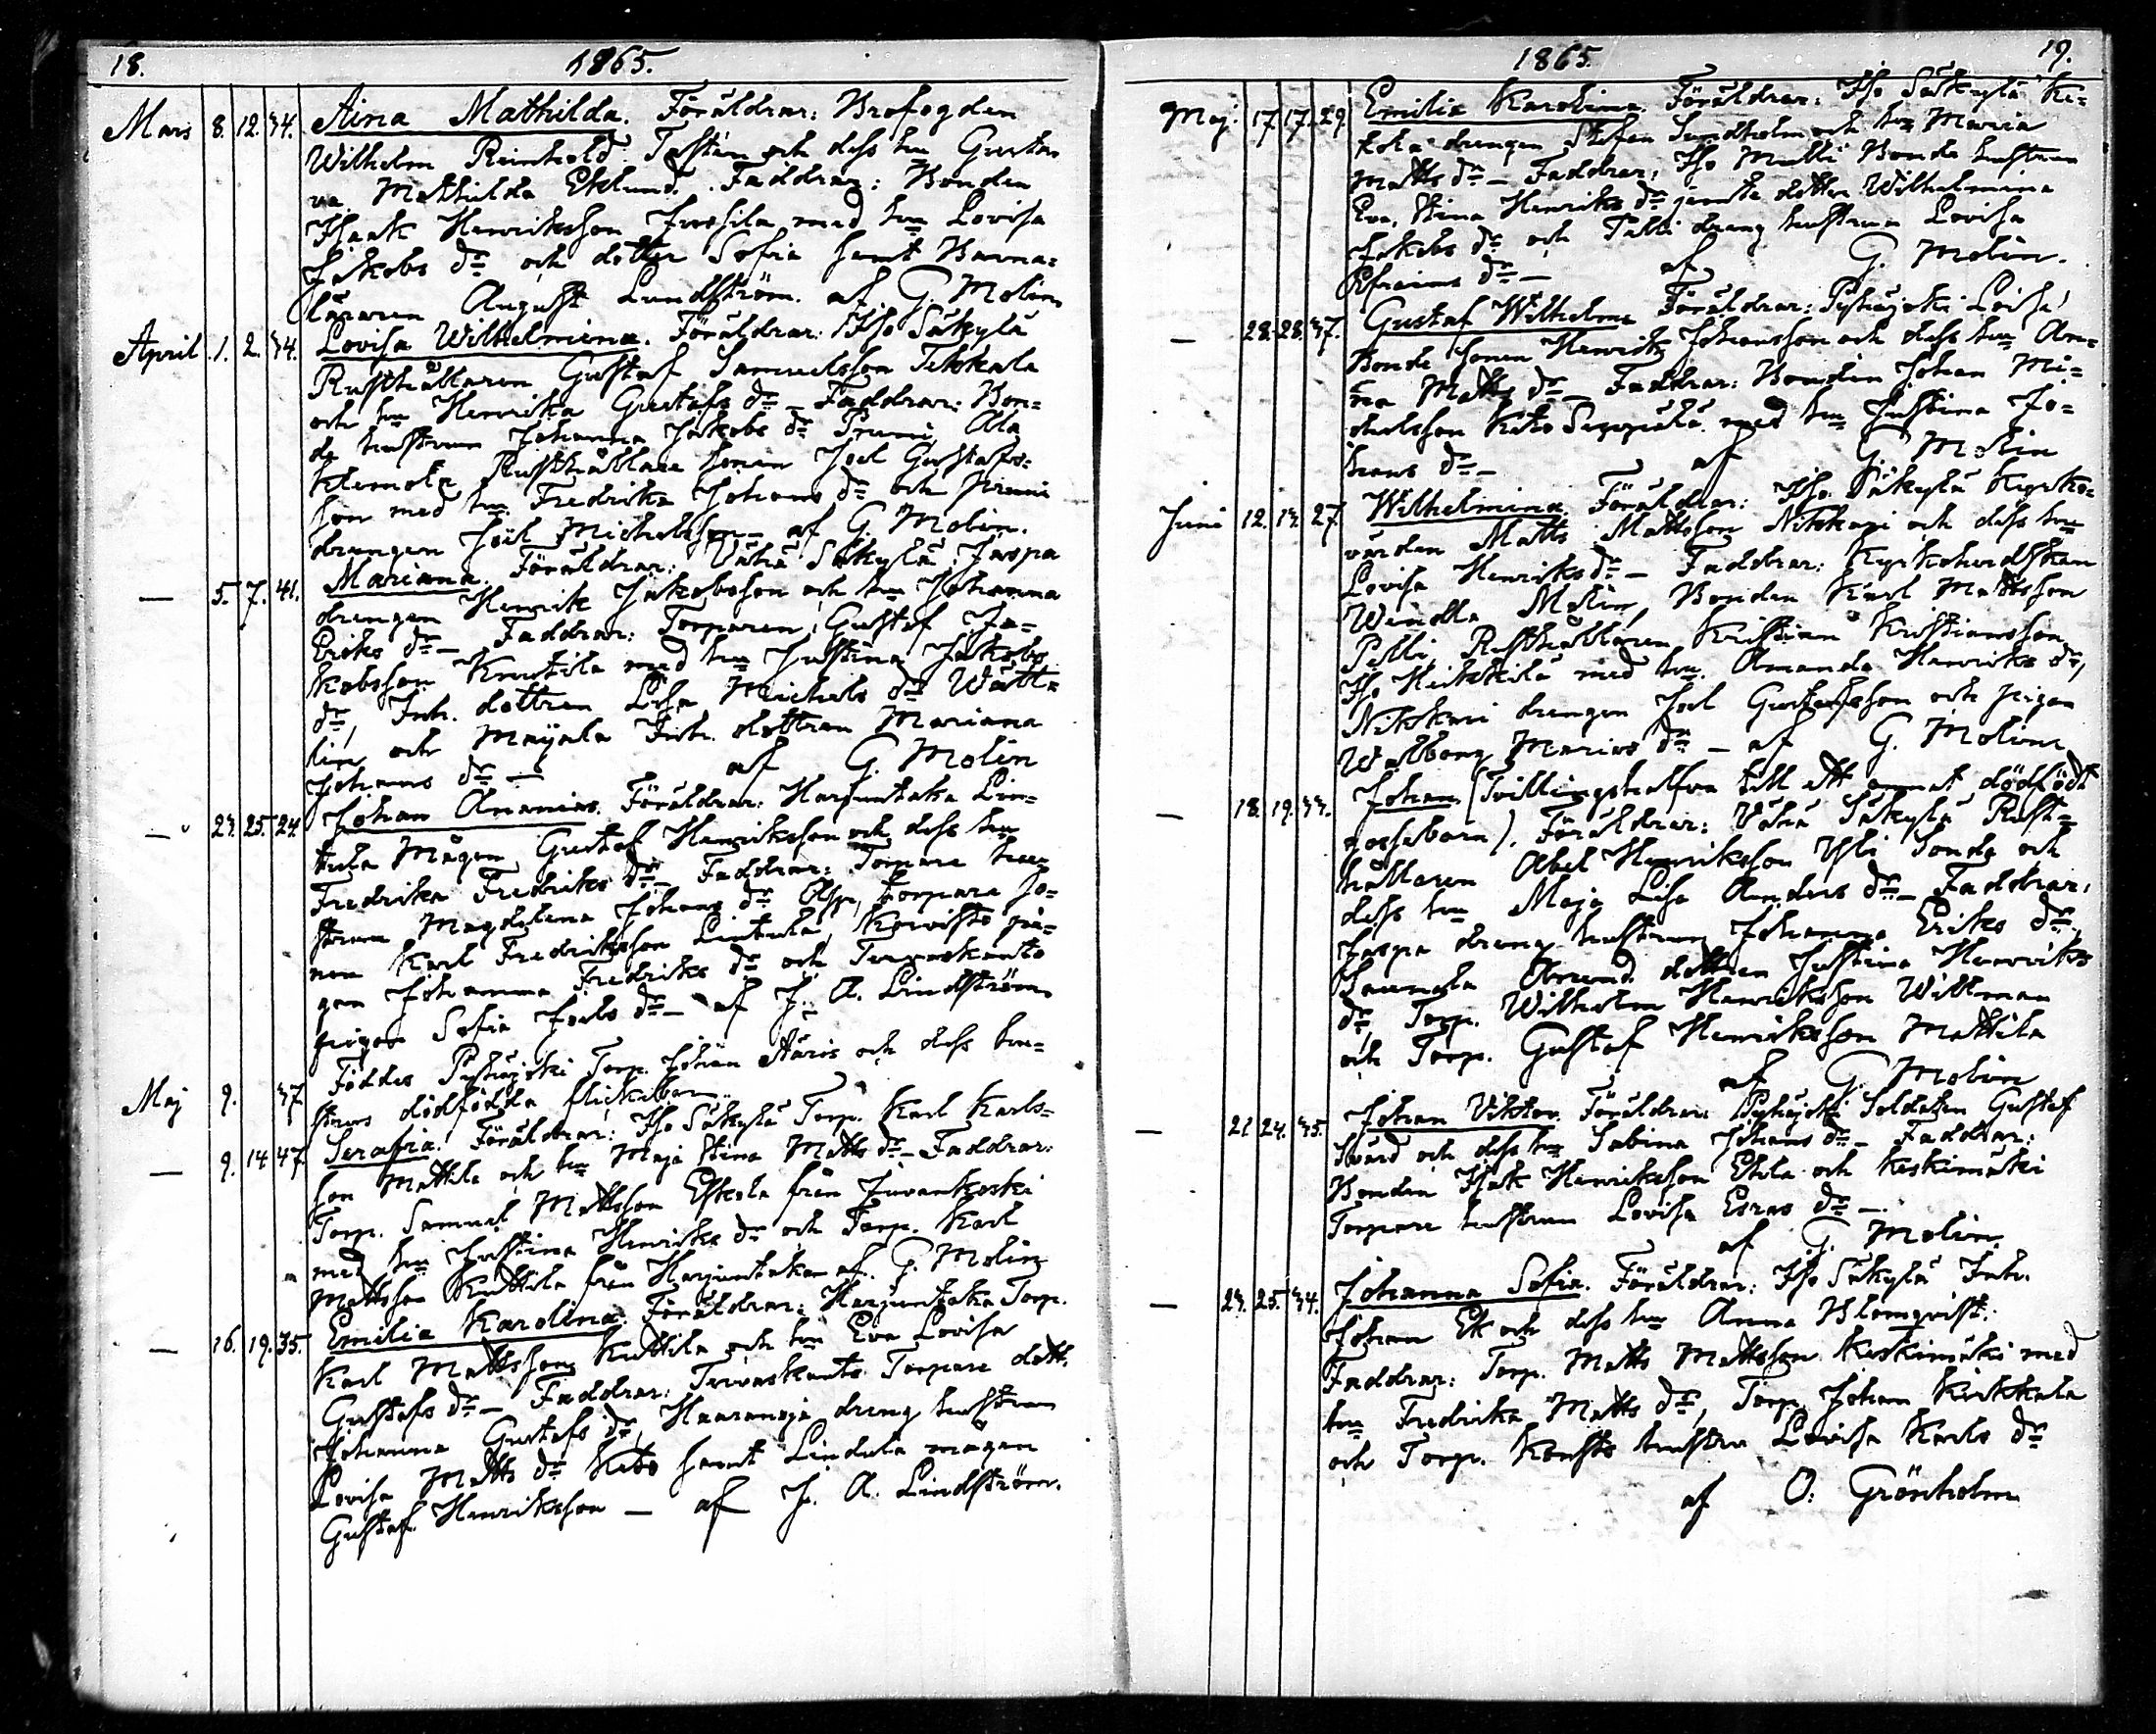 18. 1865.
Mars 8. 12. 34. Aina Mathilda. Föräldrar: Brofogden
Wilhelm Reinhold och dess hu Gusta-
va Mathilda Eklund. Faddrar: Bonden
Isaak Henriksson Jussila med hu Lovisa
Jakobs dr och dotter Sofia samt Barna-
läraren August Lundström. af G. Molin
April 1. 2. 34. Lovisa Wilhelmina. Föräldrar: Iso Säkylä
Rusthållaren Gustaf Samuelsson Tikkala
och hu Henrika Gustafs dr - Faddrar: Bon-
de hustrun Johanna Jakobs dr Prumi, Ala
klemola Rusthållare sonen Joel Gustafs-
son med hu Fredrika Johans dr och Prumi
drengen Joel Michelsson - af G. Molin.
— 5. 7. 41. Mariana. Föräldrar: Vähä Säkylä Jaspa
drengen Henrik Jakobsson och hu Johanna
Eriks dr - Faddrar: Torparen Gustaf Ja-
kobsson Knutila med hu Justina Jakobs
dr, Inh. dottren Lisa Michels dr Wätt-
lin och Mäyala Inh. dottren Mariana
Johans dr — af G. Molin
— 24. 25. 24. Johan Ananias. Föräldrar: Harjuntaka Lin-
tula Mågen Gustaf Henriksson och dess hu
Fredrika Fredriks dr - Faddrar: Torpare hu-
strun Magdalena Johans dr Asp, torpare so-
nen Karl Fredriksson Lintula, Korvisto pi-
gan Johanna Fredriks dr och Turvaskanto
pigan Sofia Joels dr - af J. A. Lindström
Maj 9. 37. Föddes Pyhäjoki Torp. Johan Ääris och dess hu-
strus dödfödda flickebarn.
— 9. 14. 47. Serafia. Föräldrar: Iso Säkylä Torp. Karl Karls-
son Mattila och hu Maja Stina Matts dr - Faddrar:
Torp. Samuel Mattsson Eskola från Juvankoski
med hu Justina Henriks dr och Torp. Karl
Mattsson Kuttila från Harjuntaka af. G. Molin
— 16. 19. 35. Emilia Karolina. Föräldrar: Harjuntaka Torp.
Karl Mattsson Kuttila och hu Eva Lovisa
Gustafs dr - Faddrar: Turvaskanto Torpare dott.
Johanna Gustafs dr, Haaranoja dreng hustrun
Lovisa Matts dr Keto samt Lindula mågen
Gustaf Henriksson — af J. A. Lindström.
1865. 19.
Maj: 17. 17. 29 Emilia Karolina. Föräldrar: Iso Säkylä Ki-
kola drengen Stefan Sundholm och hu Maria
Matts dr - Faddrar: Iso Mulli Bonde hustrun
Eva Stina Henriks dr jemte dotter Wilhelmina
Jakobs dr och Talli dreng hustrun Lovisa
Efraims dr — af G. Molin.
— 28. 28. 37. Gustaf Wilhelm. Föräldrar: Pyhäjoki Loisa
Bonde sonen Henrik Johansson och dess hu Am-
na Matts dr - Faddrar: Bonden Johan Mi-
chelsson Keto Seppälä med hu Justina Jo-
hans dr — af G. Molin
Juni 12. 14. 27. Wilhelmina. Föräldrar: Iso Säkylä Kyrko-
värden Matts Mattsson Nikkari och dess hu
Lovisa Henriks dr — Faddrar: Kyrkoherdskan
Wendla Molin, Bonden Karl Mattsson
Pelli, Rusthållaren Kristian Kristiansson
Iso Heikkilä med hu Amanda Henriks dr,
Nikkari drengen Joel Gustafsson och pigan
Walborg Marias dr — af G. Molin
— 18. 19. 44. Johan (Tvillingshalfva till ett annat dödfödt
gossebarn). Föräldrar: Vähä Säkylä Rust-
hållaren Abel Henriksson Ylisonda och
dess hu Maja Lisa Anders dr - Faddrar:
Jaspa dreng hustrun Johanna Eriks dr
dottren Justina Henriks
dr, Torp. Wilhelm Henriksson Willman
och Torp. Gustaf Henriksson Mattila
af G. Molin
— 21 24. 35. Johan Viktor. Föräldrar: Pyhäjoki Soldaten Gustaf
Svärd och dess hu Sabina Johans dr - Faddrar:
Bonden Isak Henriksson Ekila och Keskimäki
Torpare hustrun Lovisa Esras dr —
af G. Molin.
— 24. 25. 34. Johanna Sofia. Föräldrar: Iso Säkylä Inh.
Johan Ek och dess hu Anna Blomqvist.
Faddrar: Torp. Matts Mattsson Keskimäki med
hu Fredrika Matts dr, Torp. Johan Kirkkala
och Torp. hustru Lovisa Karls dr
af O. Grönholm